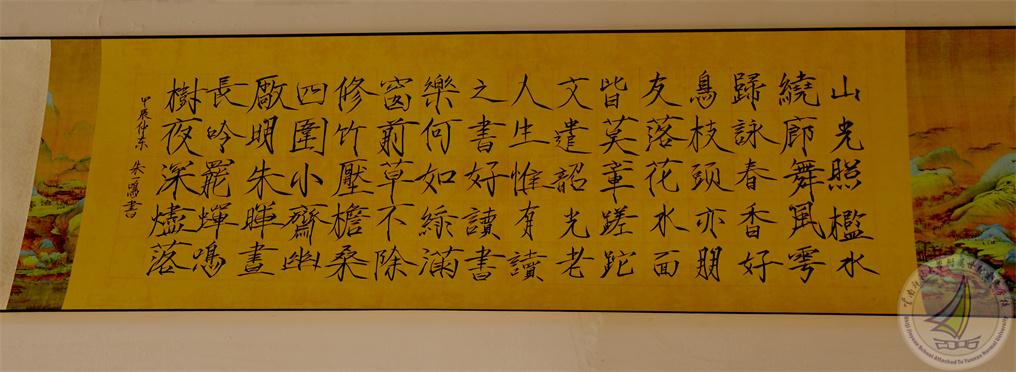 山光照檻水
繞廊舞風雩
歸詠春香好
鳥枝頭亦朋
友落花水面
皆莫章蹉跎
文遣韶光老
人生惟有讀
之書好讀書
樂何如綠滿
窗前草不除
修竹壓檐桑
四圍小齋幽
廠明朱暉晝
長吟罷蟬鳴
樹夜深燼落
甲辰仲冬 朱一書
School Attached To Yunnan Normal University